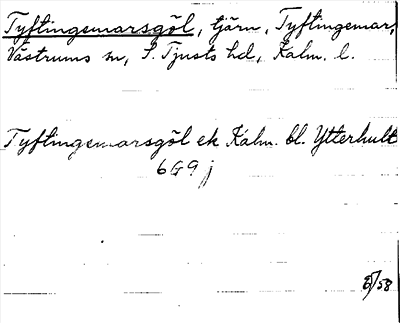 Tyftingemarsgöl, tjärn, Tyftingemar,
Västrums sn, S. Tjusts hd, Kalm. l.
Tyftingemarsgöl ek Kalm. bl. Ytterhult
6G9j
/58